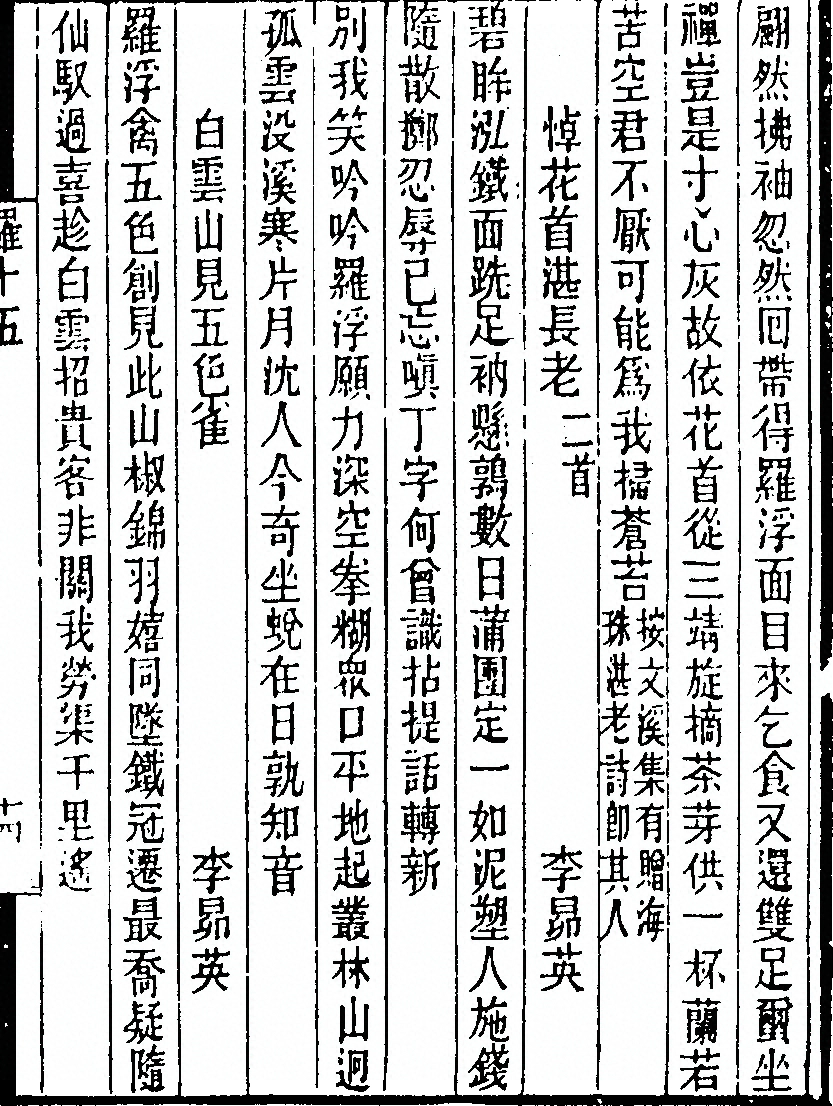 翩然拂袖忽然囘帶得羅浮面目來乞食又還雙足爾坐
禪豈是寸心灰故依花首從三靖旋摘茶芽供一杯蘭若
苦空君不厭可能爲我掃蒼苔按文溪集有贈海珠湛老詩卽其人
悼花首湛長老二首 李昴英
碧眸泓鐵面跣足衲懸鶉數日蒲團定一如泥塑人施錢
隨散擲忍辱已忘嗔丁字何曾識拈提話轉新
別我笑吟吟羅浮願力深空拳糊衆口平地起叢林山迥
孤雲没溪寒片月沈人今奇坐蛻在日孰知音
白雲山見五色雀 李昴英
羅浮禽五色創見此山椒錦羽嬉同墜鐵冠遷最喬疑隨
仙馭過喜趁白雲招貴客非關我勞渠千里遙
羅十五
十四